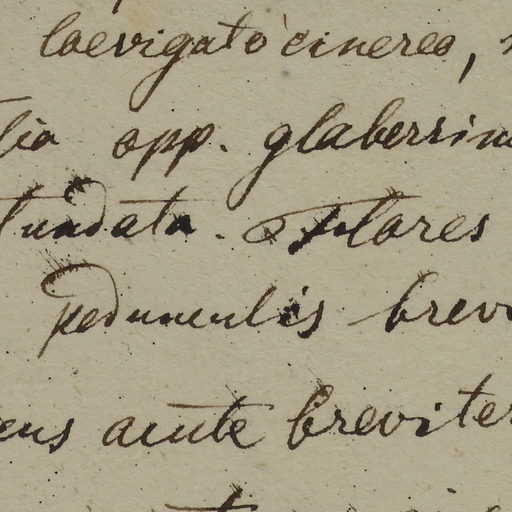 laevigato cinereo,
opp. glaberrim
tundata. Flores
pedunculis brev
ens acute breviter